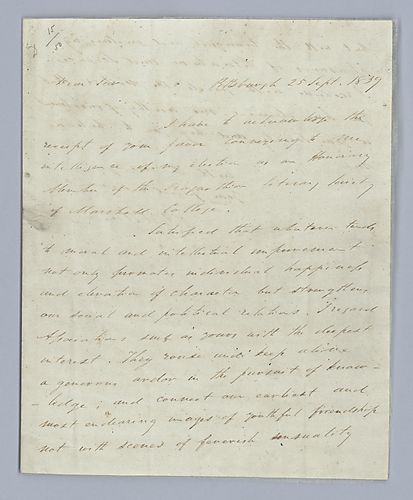 15
/
50
Dear Sir. Pittsburgh 25 Sept. 1839
I have to acknowledge the
receipt of your favor conveying to me
intelligence of my election as an Honorary
Member of the Diagnothian Literary Society
of Marshall College.
Satisfied that whatever tends
to moral and intellectual improvement
not only promotes individual happiness
and elevation of character but strengthens
our social and political relations. I regard
Associations such as yours with the deepest
interest. They rouse and keep alive
a generous ardor in the pursuit of know-
-ledge; and connect our earliest and
most endearing images of youthful friendship
not with scenes of feverish sensuality